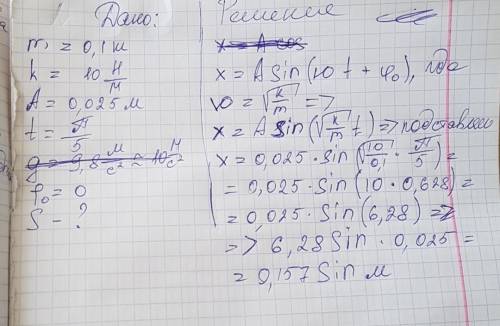 Дано:
m = 0,1 кг
k = 10 Н/м
A = 0,025 м
t = π/5
g = 9,8 м/с² ≈ 10 м/с²
φ₀ = 0
S - ?
Решение
x = A cos
x = A sin (10 t + φ₀), где
ω = √k/m =>
x = A sin (√k/m t) => подставляем
x = 0,025 · sin (√10/0,1 · π/5) =
= 0,025 · sin (10 · 0,628) =
= 0,025 · sin (6,28) =>
=> 6,28 Sin · 0,025 =
= 0,157 Sin м